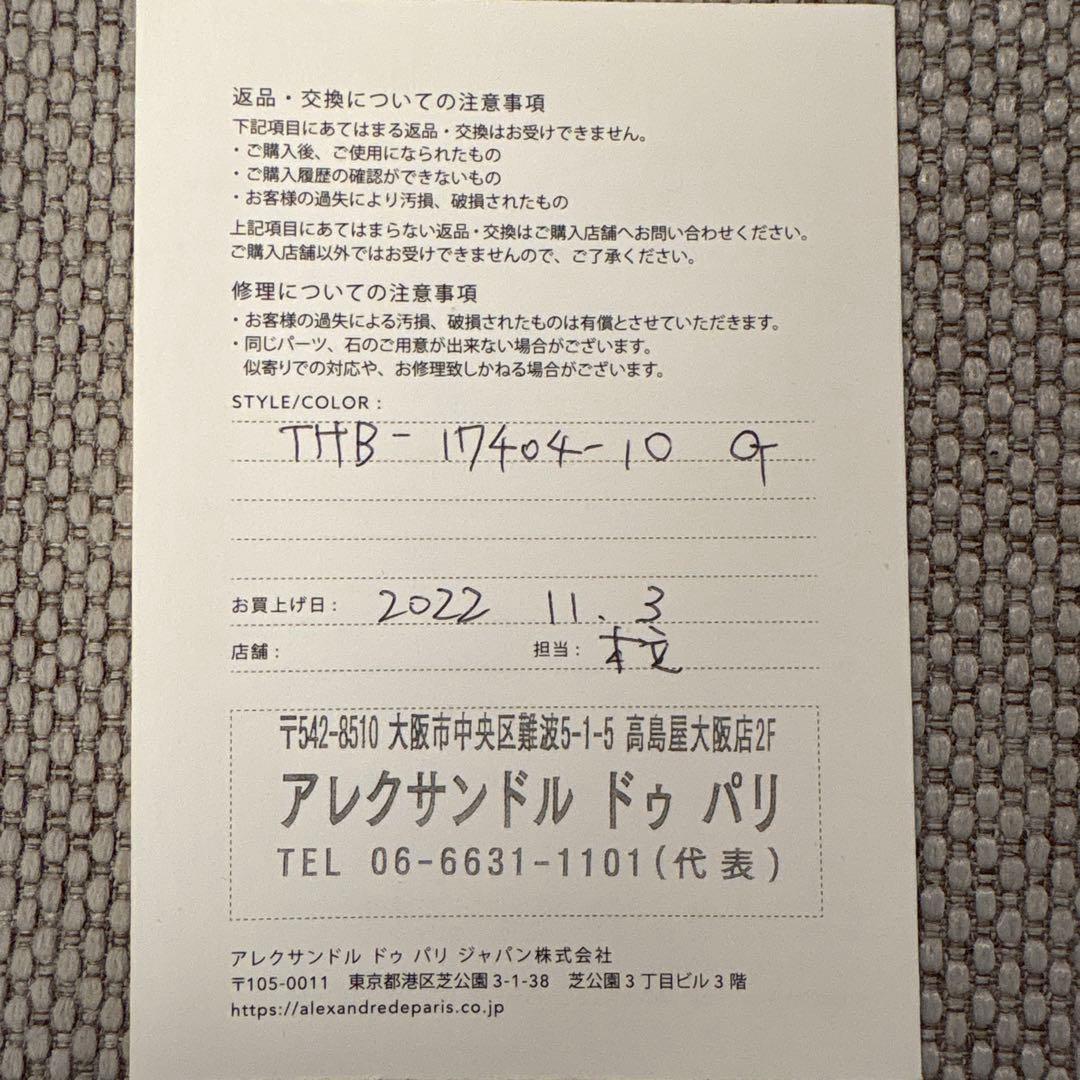 返品・交換についての注意事項
下記項目にあてはまる返品・交換はお受けできません。
・ご購入後、ご使用になられたもの
・ご購入履歴の確認ができないもの
・お客様の過失により汚損、破損されたもの
上記項目にあてはまらない返品・交換はご購入店舗へお問い合わせください。
ご購入店舗以外ではお受けできませんので、ご了承ください。
修理についての注意事項
・お客様の過失による汚損、破損されたものは有償とさせていただきます。
・同じパーツ、石のご用意が出来ない場合がございます。
似寄りでの対応や、お修理致しかねる場合がございます。
STYLE/COLOR :
THB-17404-10 G
お買上げ日: 2022 11. 3
店舗: 担当:
〒542-8510 大阪市中央区難波5-1-5 高島屋大阪店2F
アレクサンドル ドゥ パリ
TEL 06-6631-1101(代表)
アレクサンドル ドゥ パリ ジャパン株式会社
〒105-0011 東京都港区芝公園3-1-38 芝公園3丁目ビル3階
https://alexandredeparis.co.jp